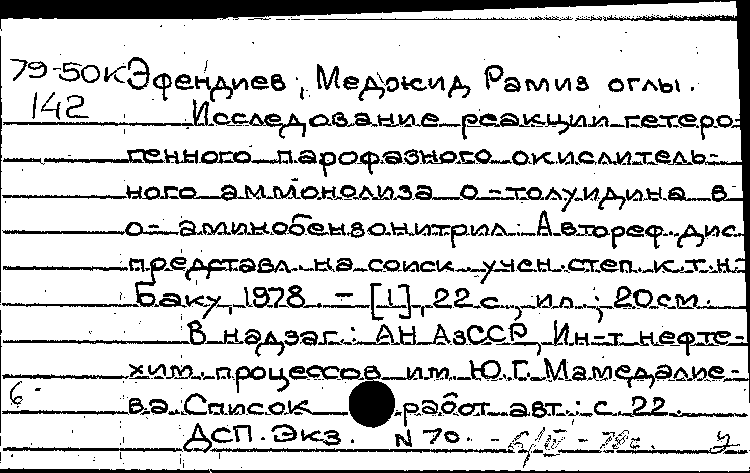 79-50К Эфендиев, Меджид Рамиз оглы.
142 Исследование реакции гетеро-
генного парофазного окислитель-
ного аммонолиза о-толуидина в
о-аминобензонитрил: Автореф. дис.
представл. на соиск. учен. степ. к.т.н.-
Баку, 1978. - [1], 22 с., ил.; 20 см.
В надзаг.: АН АзССР, Ин-т нефте-
хим. процессов им. Ю.Г. Мамедалие-
6 ва. Список работ авт.: с. 22.
ДСП. Экз. N 70.